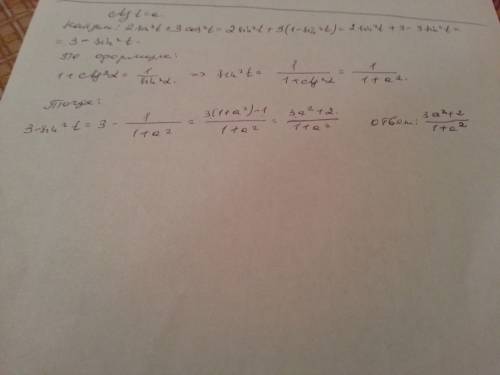 ctg t = a
Найдем: 2 sin²t + 3 cos²t = 2 sin²t + 3(1 - sin²t) = 2 sin²t + 3 - 3 sin²t =
= 3 - sin²t.
По формуле:
1 + ctg²α = 1/sin²α. => sin²t = 1/(1 + ctg²α) = 1/(1 + a²).
Тогда:
3 - sin²t = 3 - 1/(1 + a²) = (3(1 + a²) - 1)/(1 + a²) = (3a² + 2)/(1 + a²) Ответ: (3a² + 2)/(1 + a²)